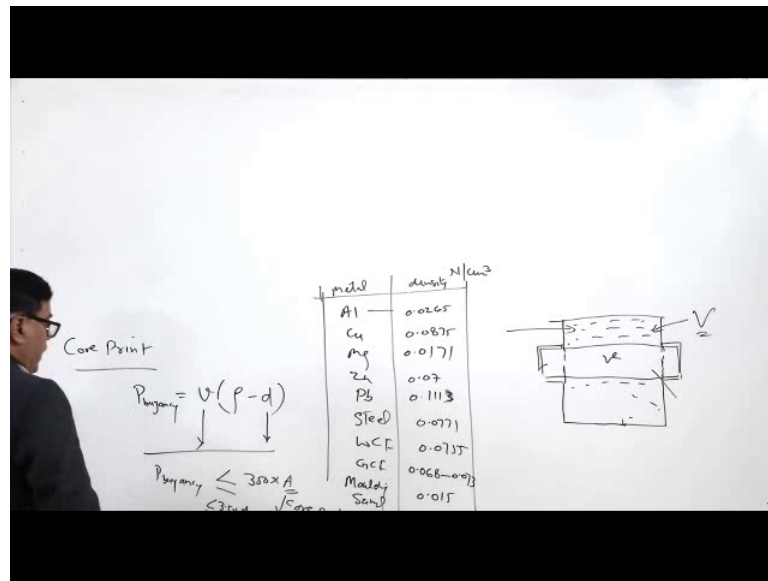 Core Print
P buoyancy = V (ρ - d)
P buoyancy ≤ 350 × A
metal density N/cm³
Al 0.0265
Cu 0.0875
Mg 0.0171
Zn 0.07
Pb 0.1113
Steel 0.0771
WCI 0.0755
GCI 0.068-0.073
Moulding
Sand 0.015
V